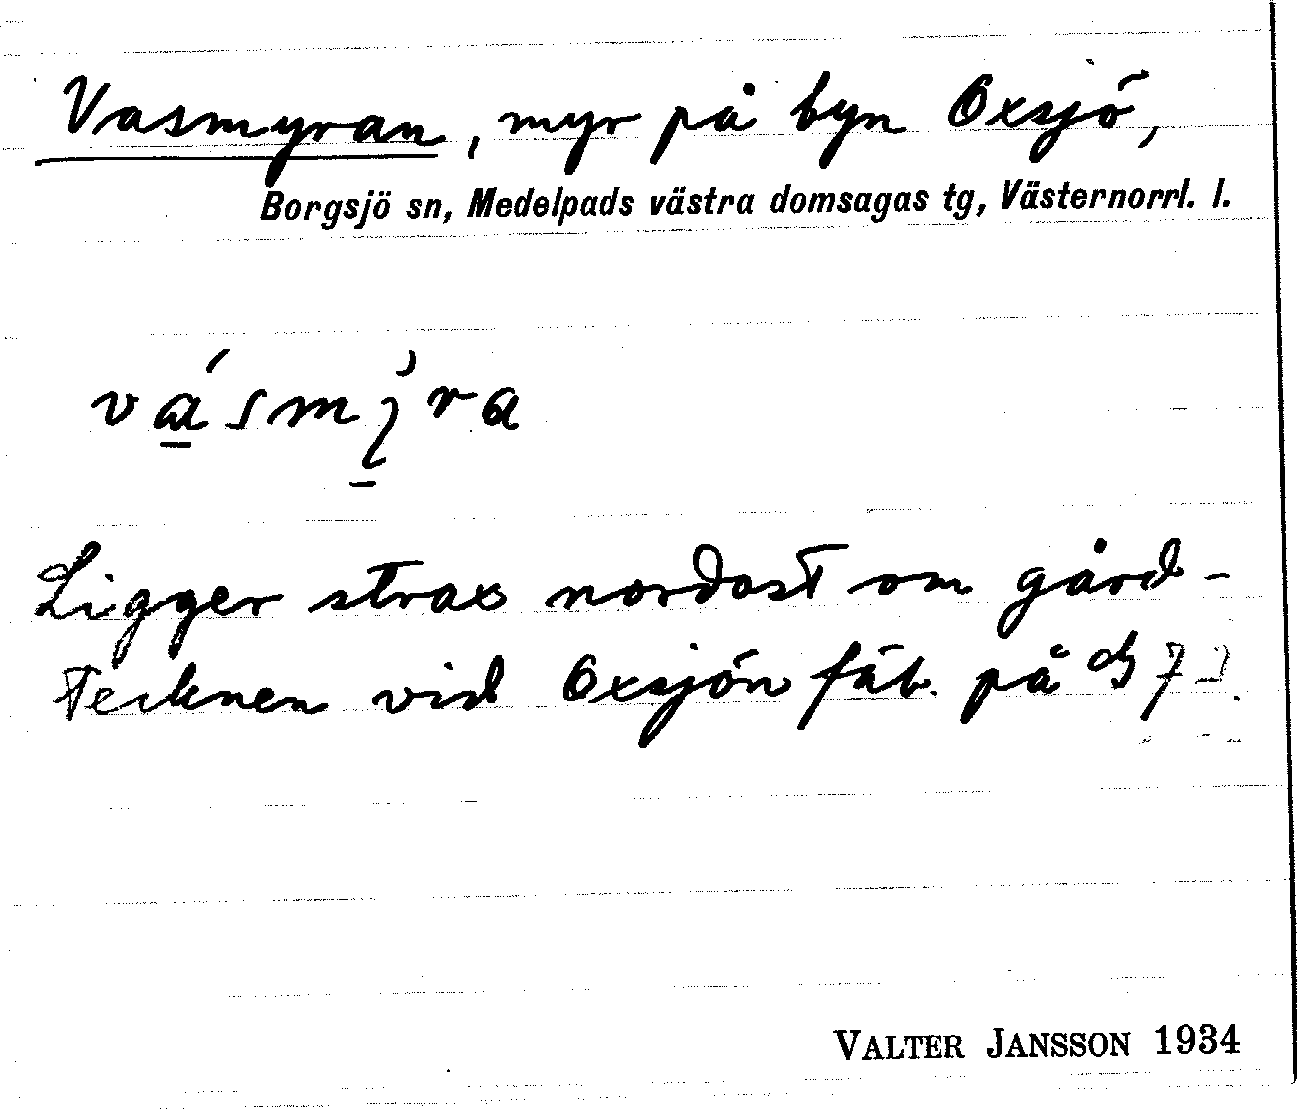 Vasmyran, myr på byn Oxsjö,
Borgsjö sn, Medelpads västra domsagas tg, Västernorrl. l.
Ligger strax nordost om gård-
tecknen vid Oxsjön fäb. på
VALTER JANSSON 1934